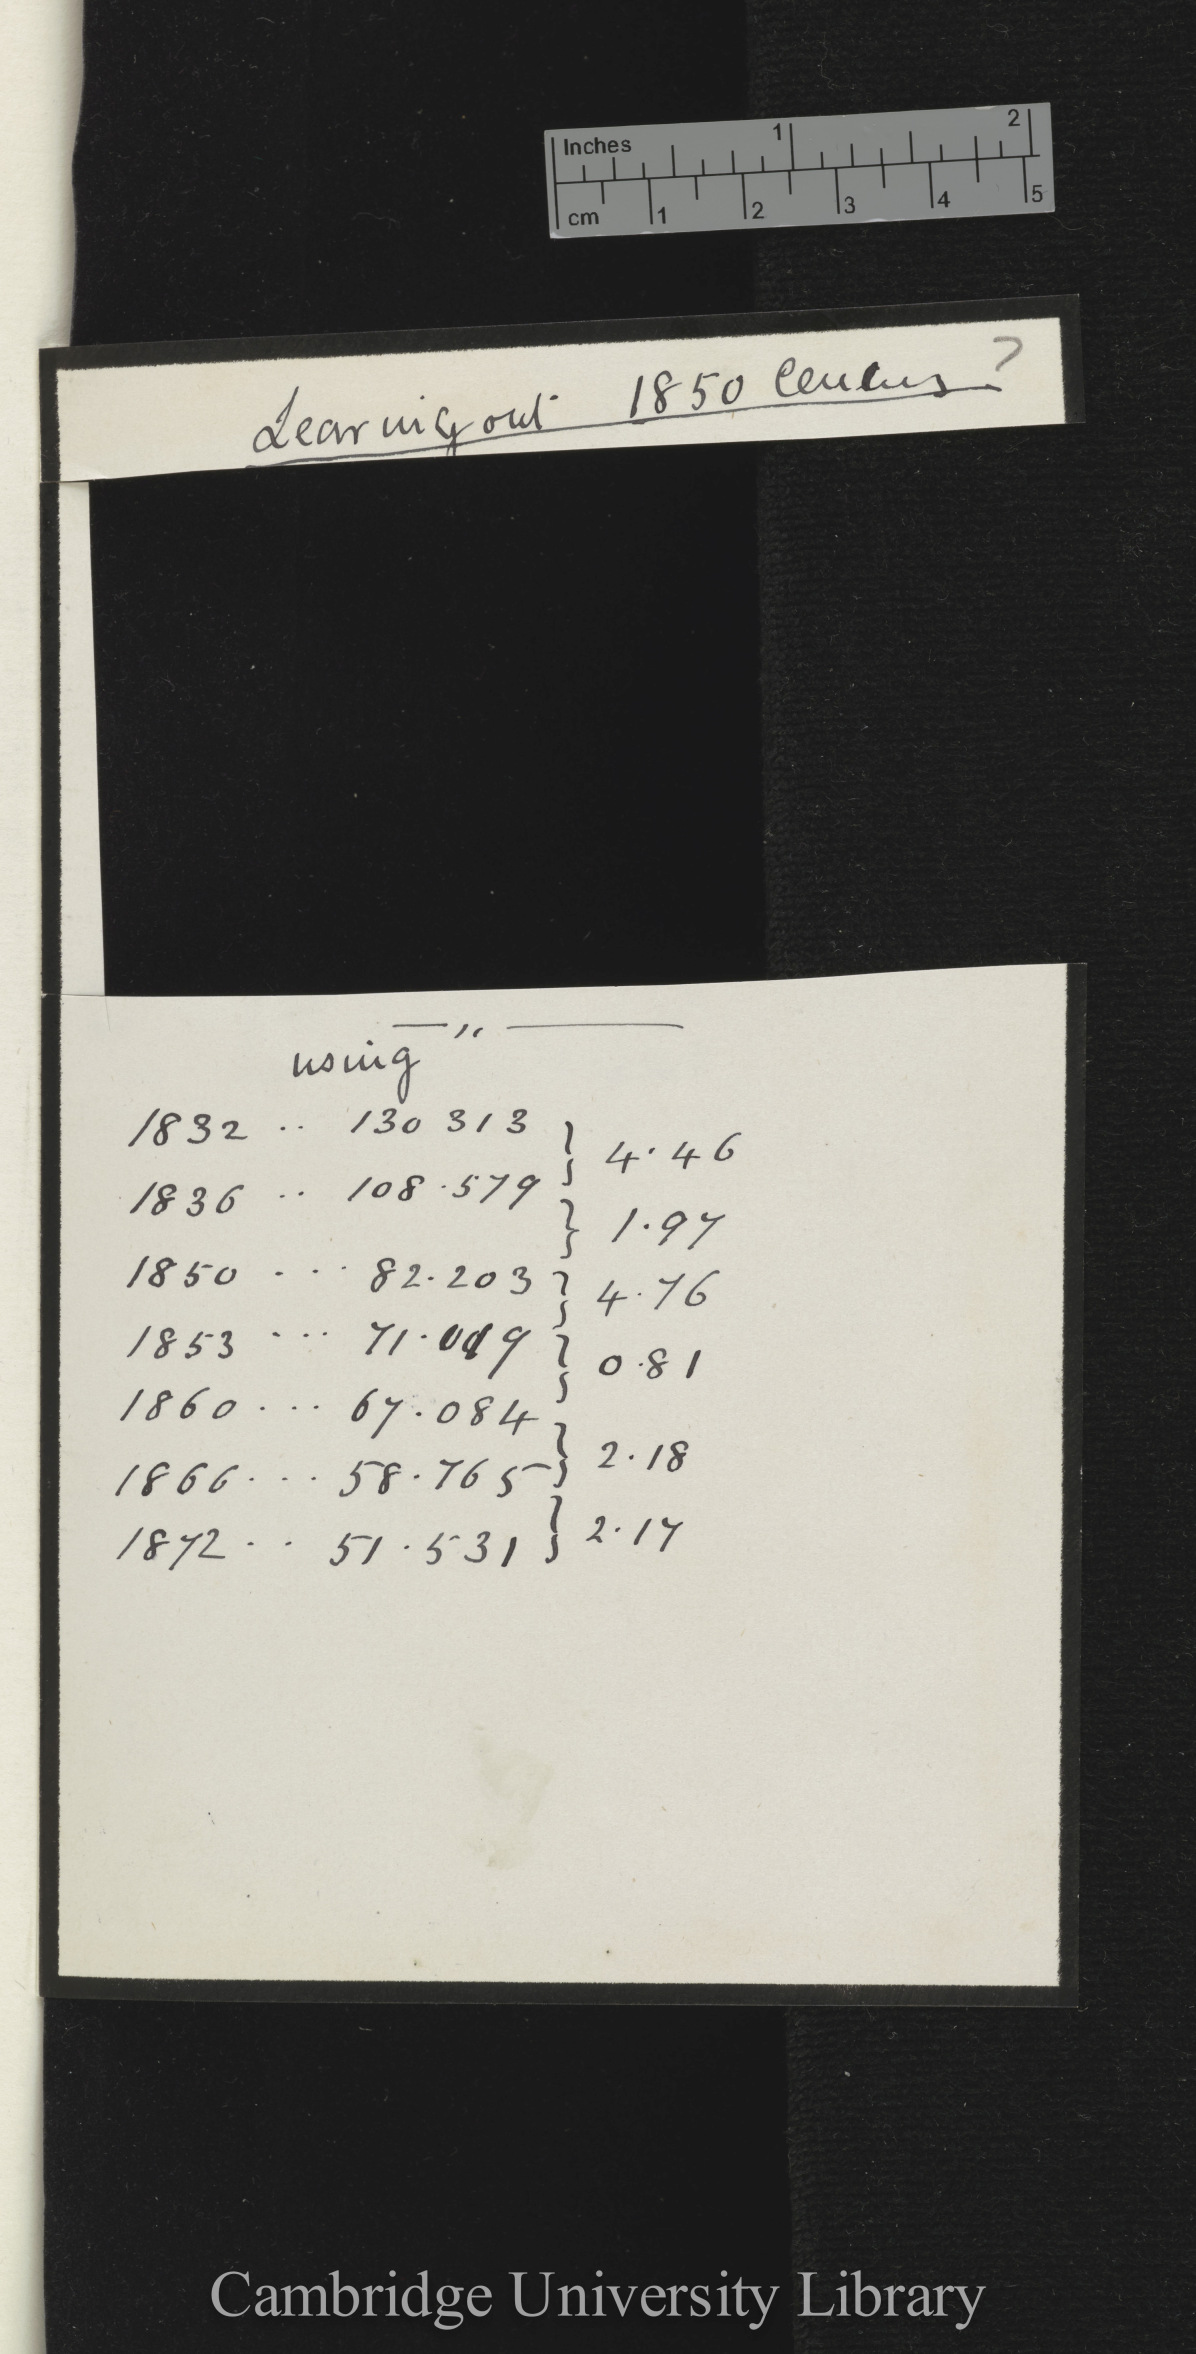 Inches 1 2
cm 1 2 3 4 5
Leaving out 1850 Census ?
— ,, —
using
1832 .. 130 313 } 4.46
1836 .. 108.579 } 1.97
1850 ... 82.203 } 4.76
1853 ... 71.019 } 0.81
1860 ... 67.084 } 2.18
1866 ... 58.765 } 2.17
1872 .. 51.531
Cambridge University Library